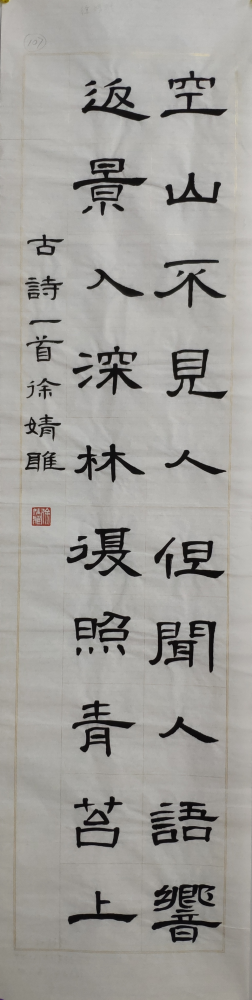 空山不見人但聞人語響
返景入深林復照青苔上
古詩一首徐婧雎